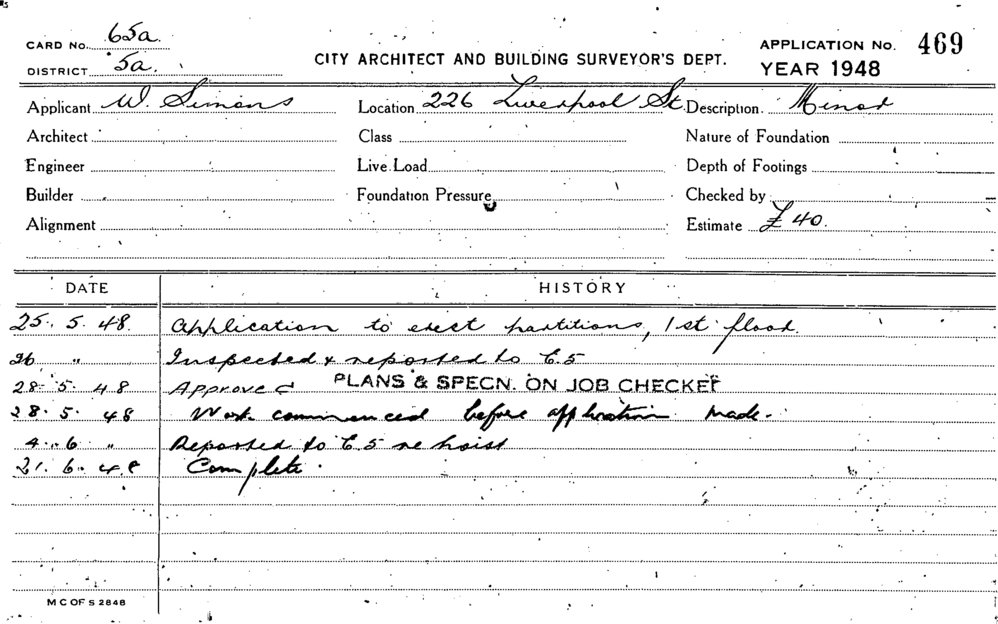 CARD No. 65a
CITY ARCHITECT AND BUILDING SURVEYOR'S DEPT.
APPLICATION No. 469
DISTRICT 5a
YEAR 1948
Applicant W. Simons Location 226 Liverpool St. Description Minor
Architect Class Nature of Foundation
Engineer Live Load Depth of Footings
Builder Foundation Pressure Checked by
Alignment Estimate £40.
DATE HISTORY
25. 5. 48 Application to erect partitions, 1st floor.
26 " Inspected & reported to C.5
28. 5. 48 Approved PLANS & SPECN. ON JOB CHECKED
28. 5. 48 Work commenced before application made.
4. 6 " Reported to C.5 re hoist
21. 6. 48 Complete.
M C OF S 2848